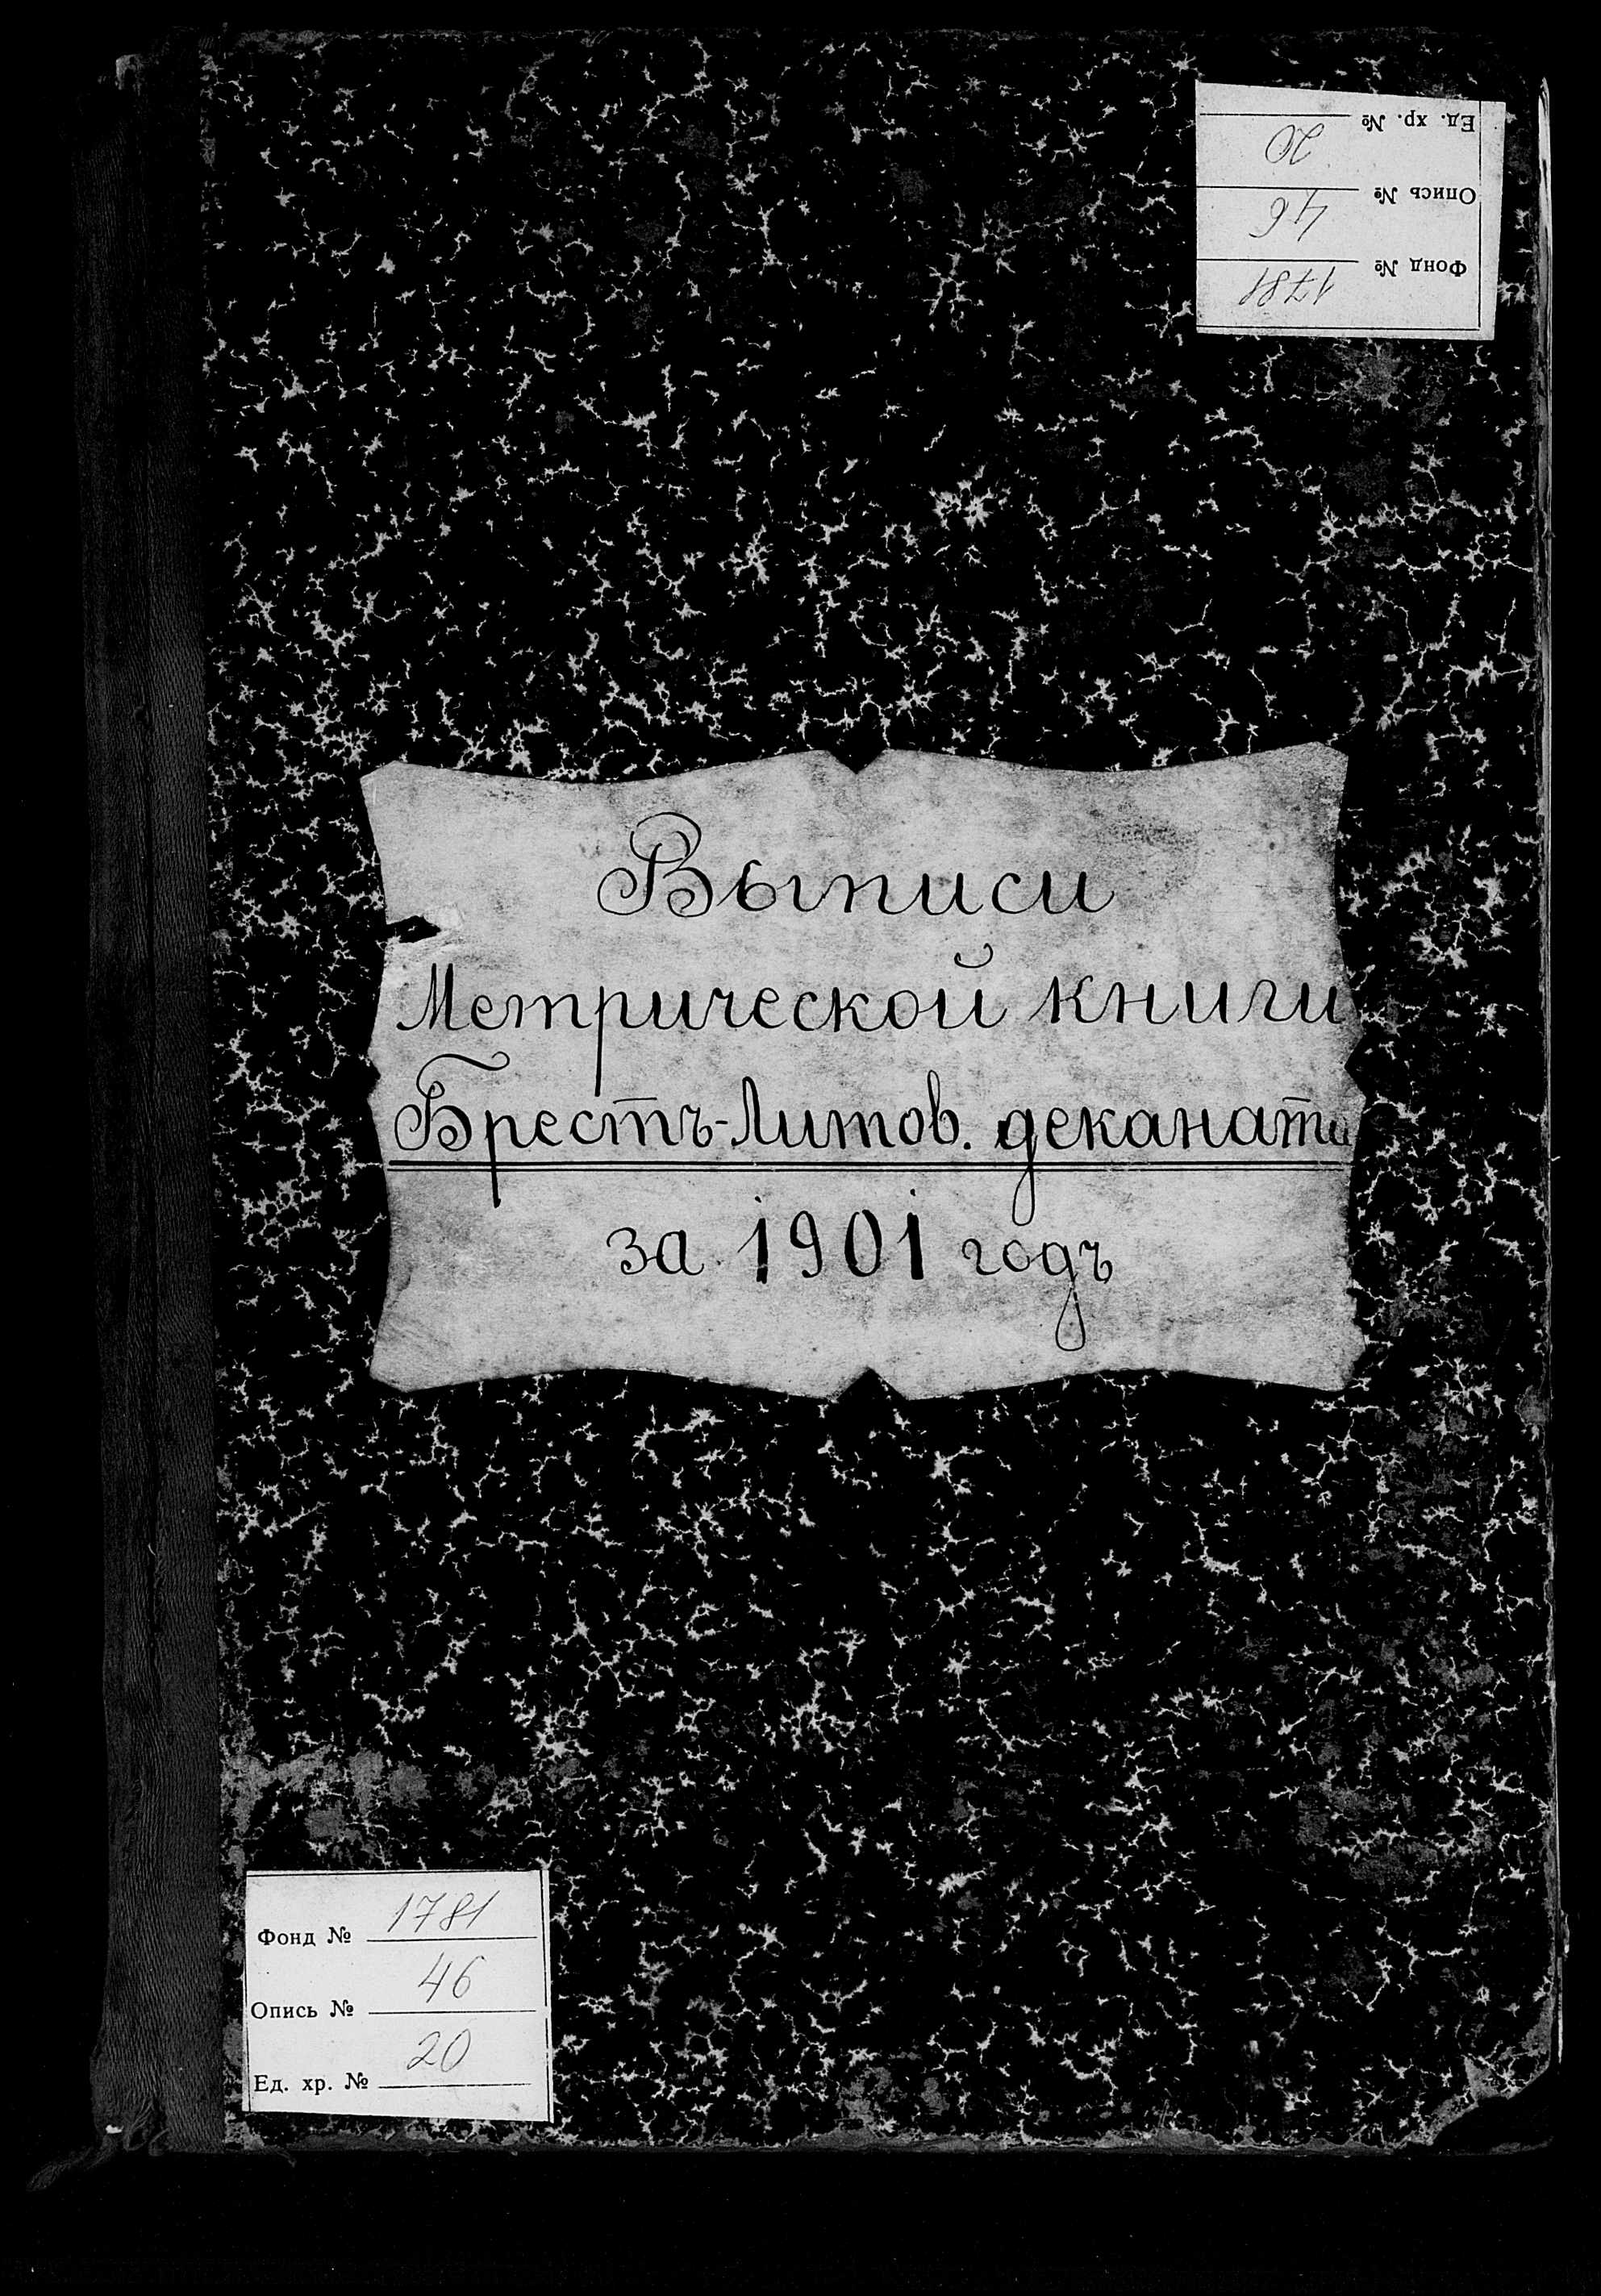 Ед. хр. № 20
Опись № 46
Фонд № 1781
Выписи
Метрической книги
Брестъ-Литов. деканата
за 1901 годъ
Фонд № 1781
Опись № 46
Ед. хр. № 20